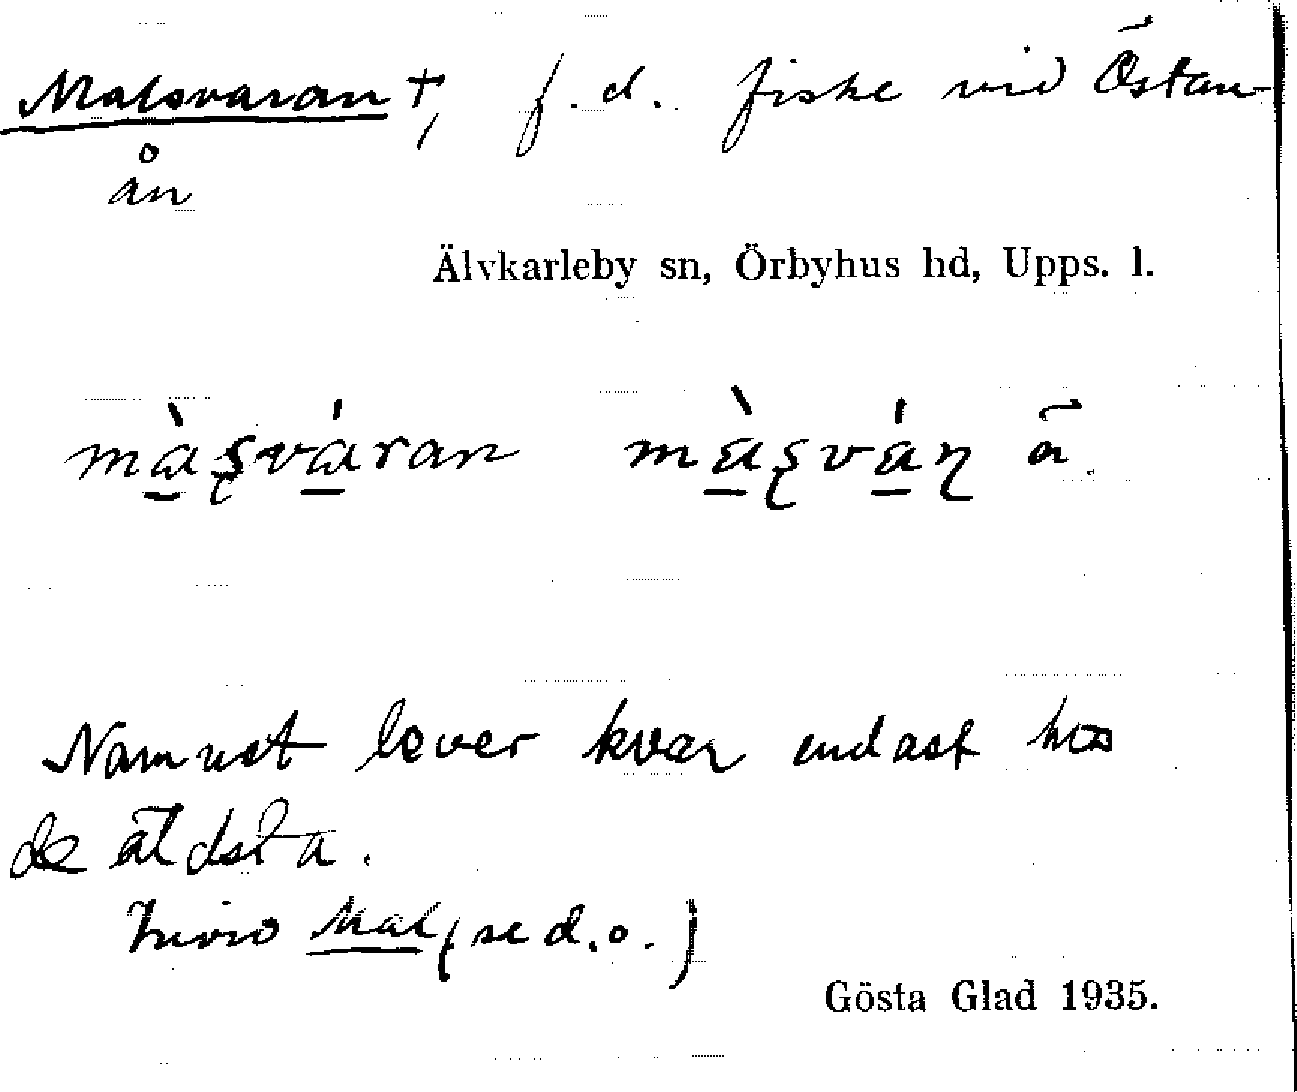 Malsvaran †, f.d. fiske vid Östan-
ån
Älvkarleby sn, Örbyhus hd, Upps. l.
màʂváran màʂváɳ å.
Namnet lever kvar endast hos
de äldsta.
Invid Mal (se d.o.)
Gösta Glad 1935.